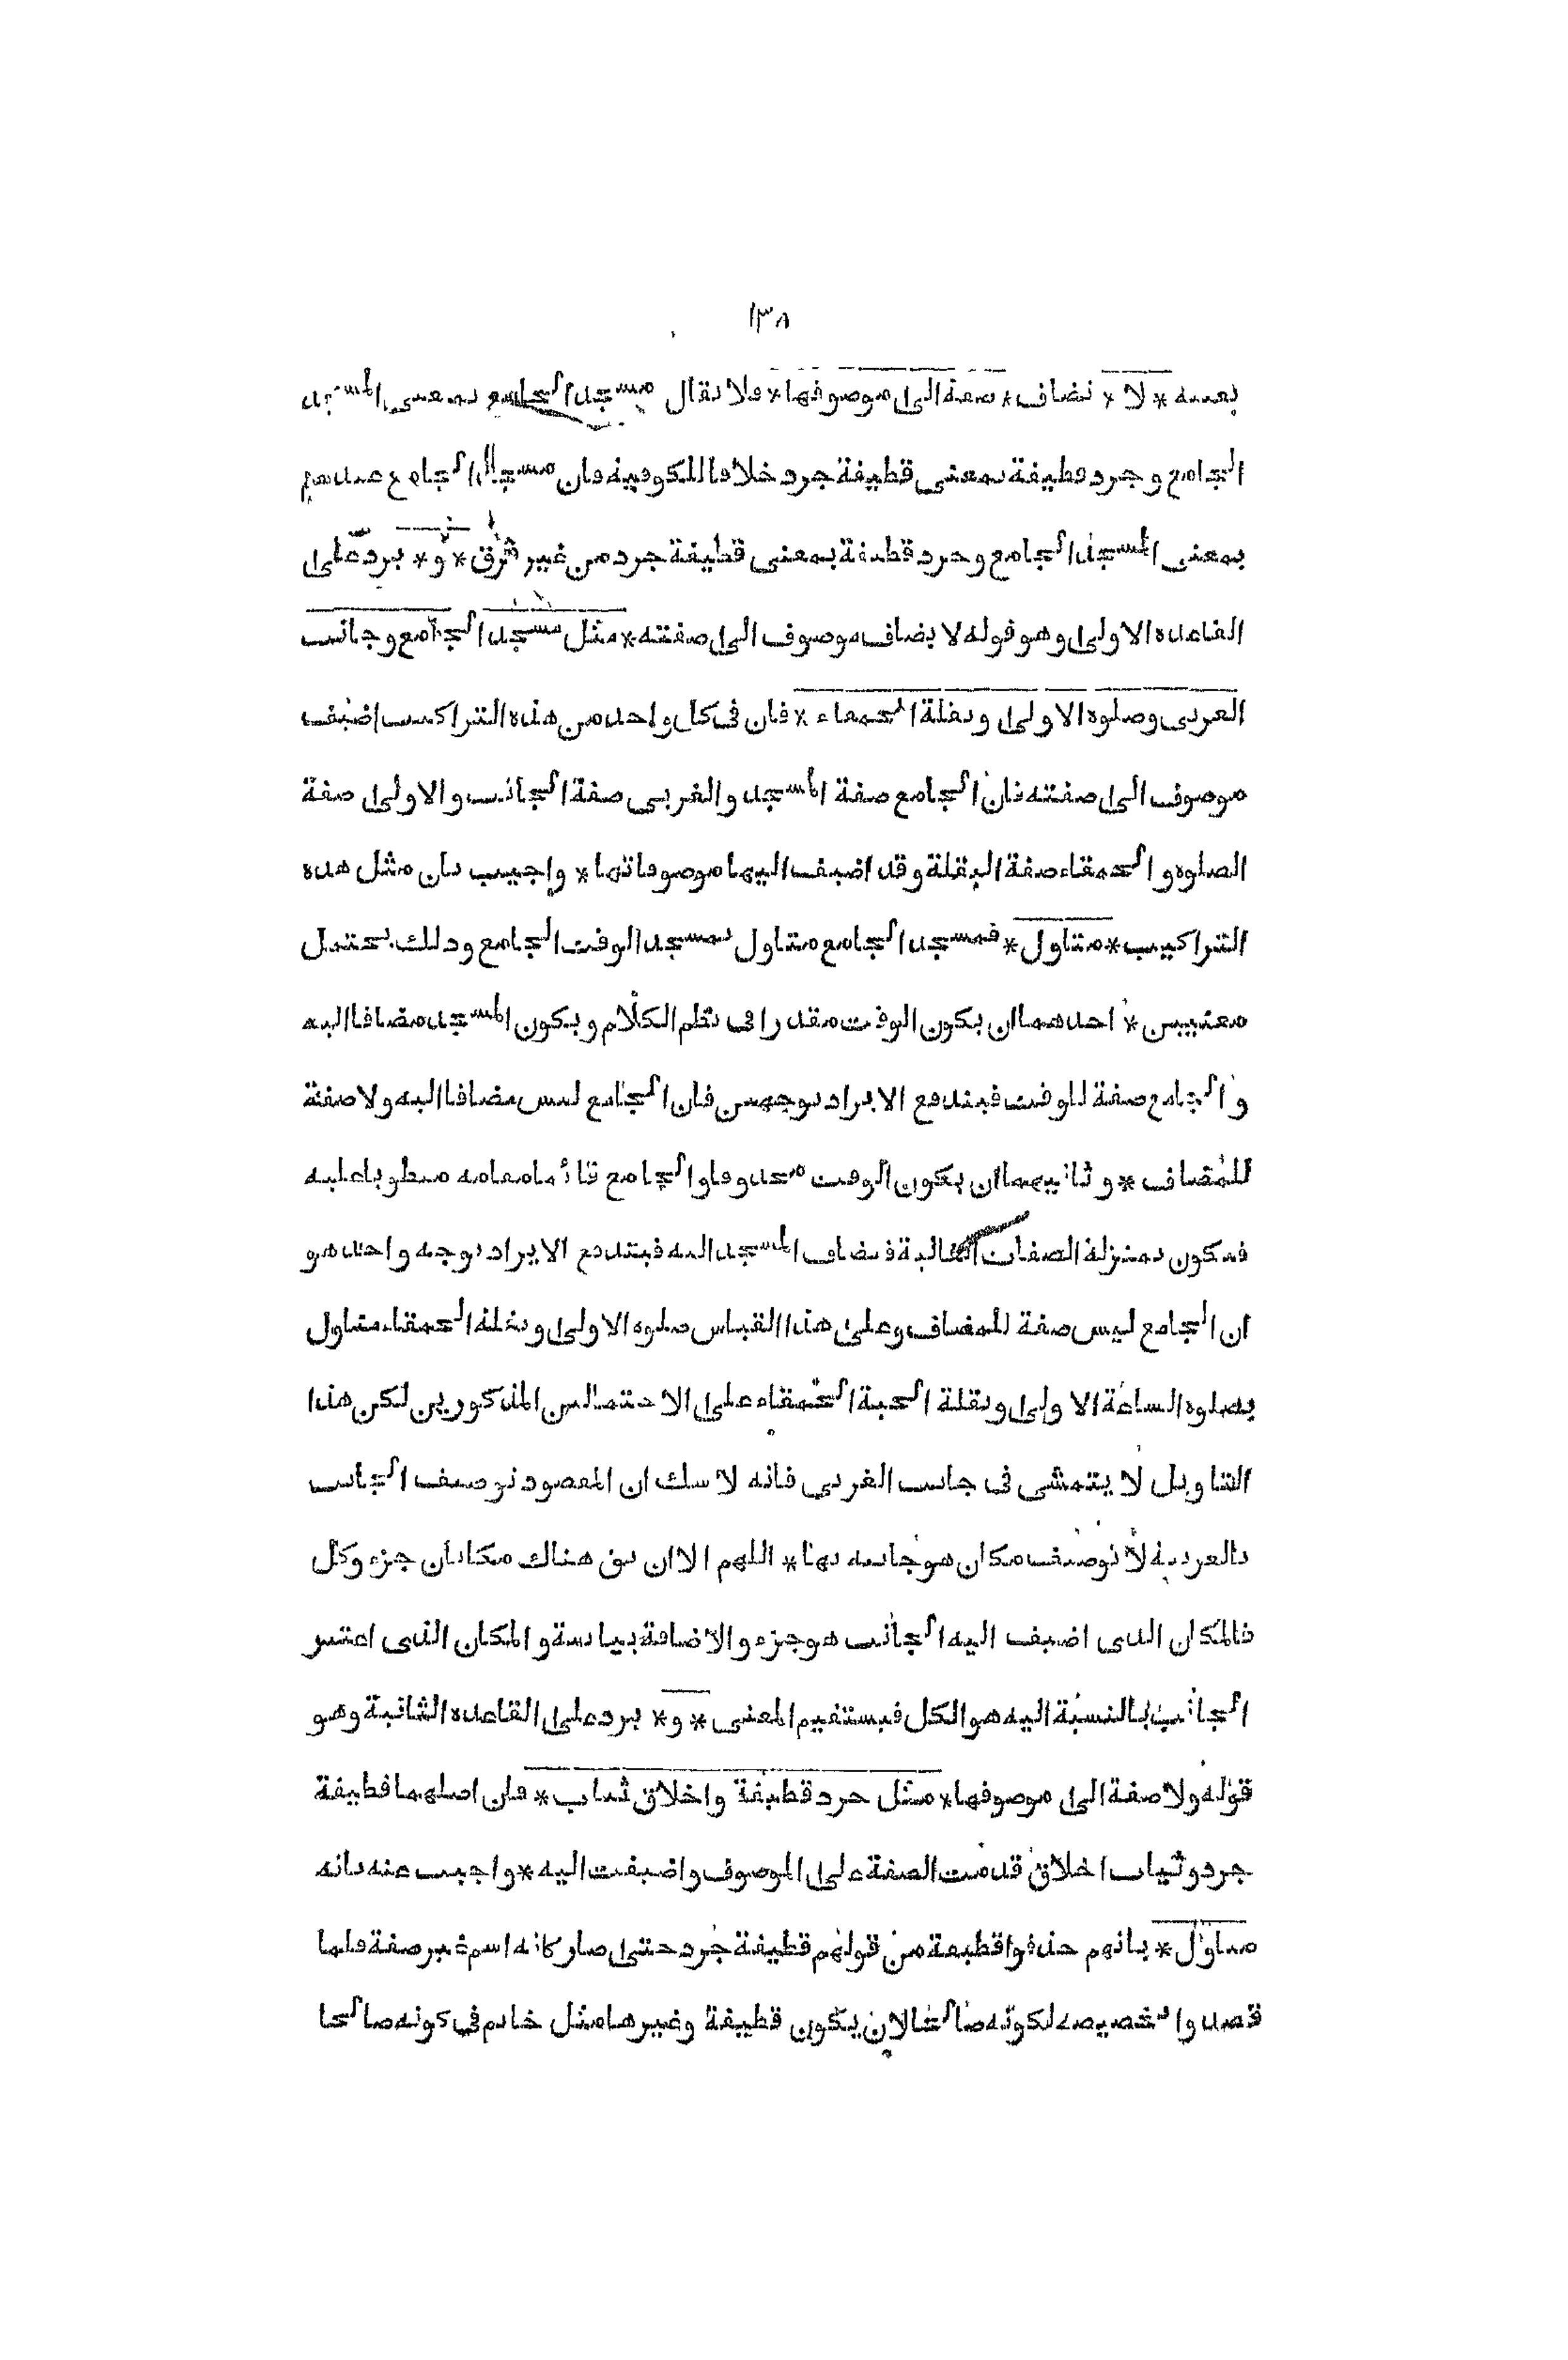 ١٣٨
بعينه * لا * تضاف * صفة الى موصوفها * فلا يقال مسجد الجامع بمعنى المسجد
الجامع وجرد قطيفة بمعنى قطيفة جرد خلافا للكوفية فان مسجد الجامع عندهم
بمعنى المسجد الجامع وجرد قطيفة بمعنى قطيفة جرد من غير فرق * و * يرد على
القاعدة الاولى وهو قوله لا يضاف موصوف الى صفته * مثل مسجد الجامع وجانب
الغربى وصلوة الاولى وبقلة الحمقاء * فان فى كل واحد من هذه التراكيب اضيف
موصوف الى صفته فان الجامع صفة المسجد والغربى صفة الجانب والاولى صفة
الصلوة والحمقاء صفة البقلة وقد اضيف اليها موصوفاتها * واجيب بان مثل هذه
التراكيب * متاول * فمسجد الجامع متاول بمسجد الوقت الجامع وذلك يحتمل
معنيين * احدهما ان يكون الوقت مقدرا فى نظم الكلام ويكون المسجد مضافا اليه
والجامع صفة للوقت فيندفع الايراد بوجهين فان الجامع ليس مضافا اليه ولا صفة
للمضاف * وثانيهما ان يكون الوقت محذوفا والجامع قائما مقامه منطويا عليه
فيكون بمنزلة الصفات الغالبة فيضاف المسجد اليه فيندفع الايراد بوجه واحد هو
ان الجامع ليس صفة للمضاف وعلى هذا القياس صلوة الاولى وبقلة الحمقاء متاول
بصلوة الساعة الاولى وبقلة الحبة الحمقاء على الاحتمالين المذكورين لكن هذا
التاويل لا يتمشى فى جانب الغربى فانه لا شك ان المقصود توصيف الجانب
بالغربية لا توصيف مكان هو جانبه بها * اللهم الا ان يق هناك مكانان جزء وكل
فالمكان الذى اضيف اليه الجانب هو جزء والاضافة بيانية والمكان الذى اعتبر
الجانب بالنسبة اليه هو الكل فيستقيم المعنى * و * يرد على القاعدة الثانية وهو
قوله ولا صفة الى موصوفها * مثل جرد قطيفة واخلاق ثياب * فان اصلهما قطيفة
جرد وثياب اخلاق قدمت الصفة على الموصوف واضيفت اليه * واجيب عنه بانه
متاول * بانهم حذفوا قطيفة من قولهم قطيفة جرد حتى صار كانه اسم غير صفة فلما
قصدوا تخصيصه لكونه صالحا لان يكون قطيفة وغيرها مثل خاتم فى كونه صالحا